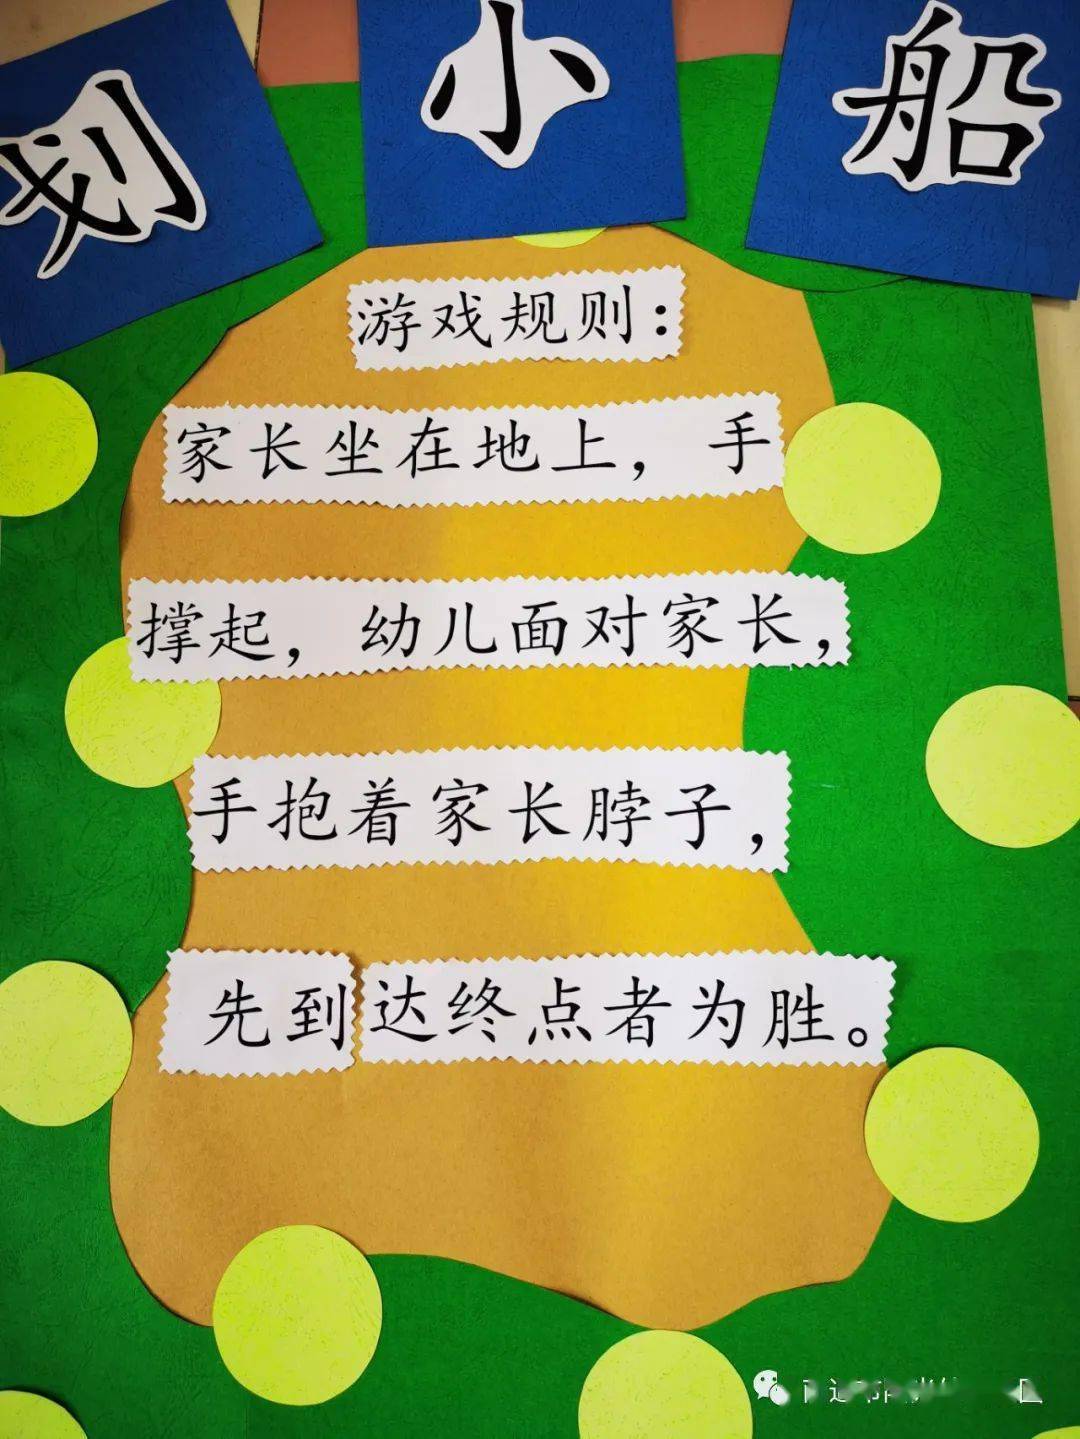 划小船
游戏规则：
家长坐在地上，手
撑起，幼儿面对家长，
手抱着家长脖子，
先到达终点者为胜。